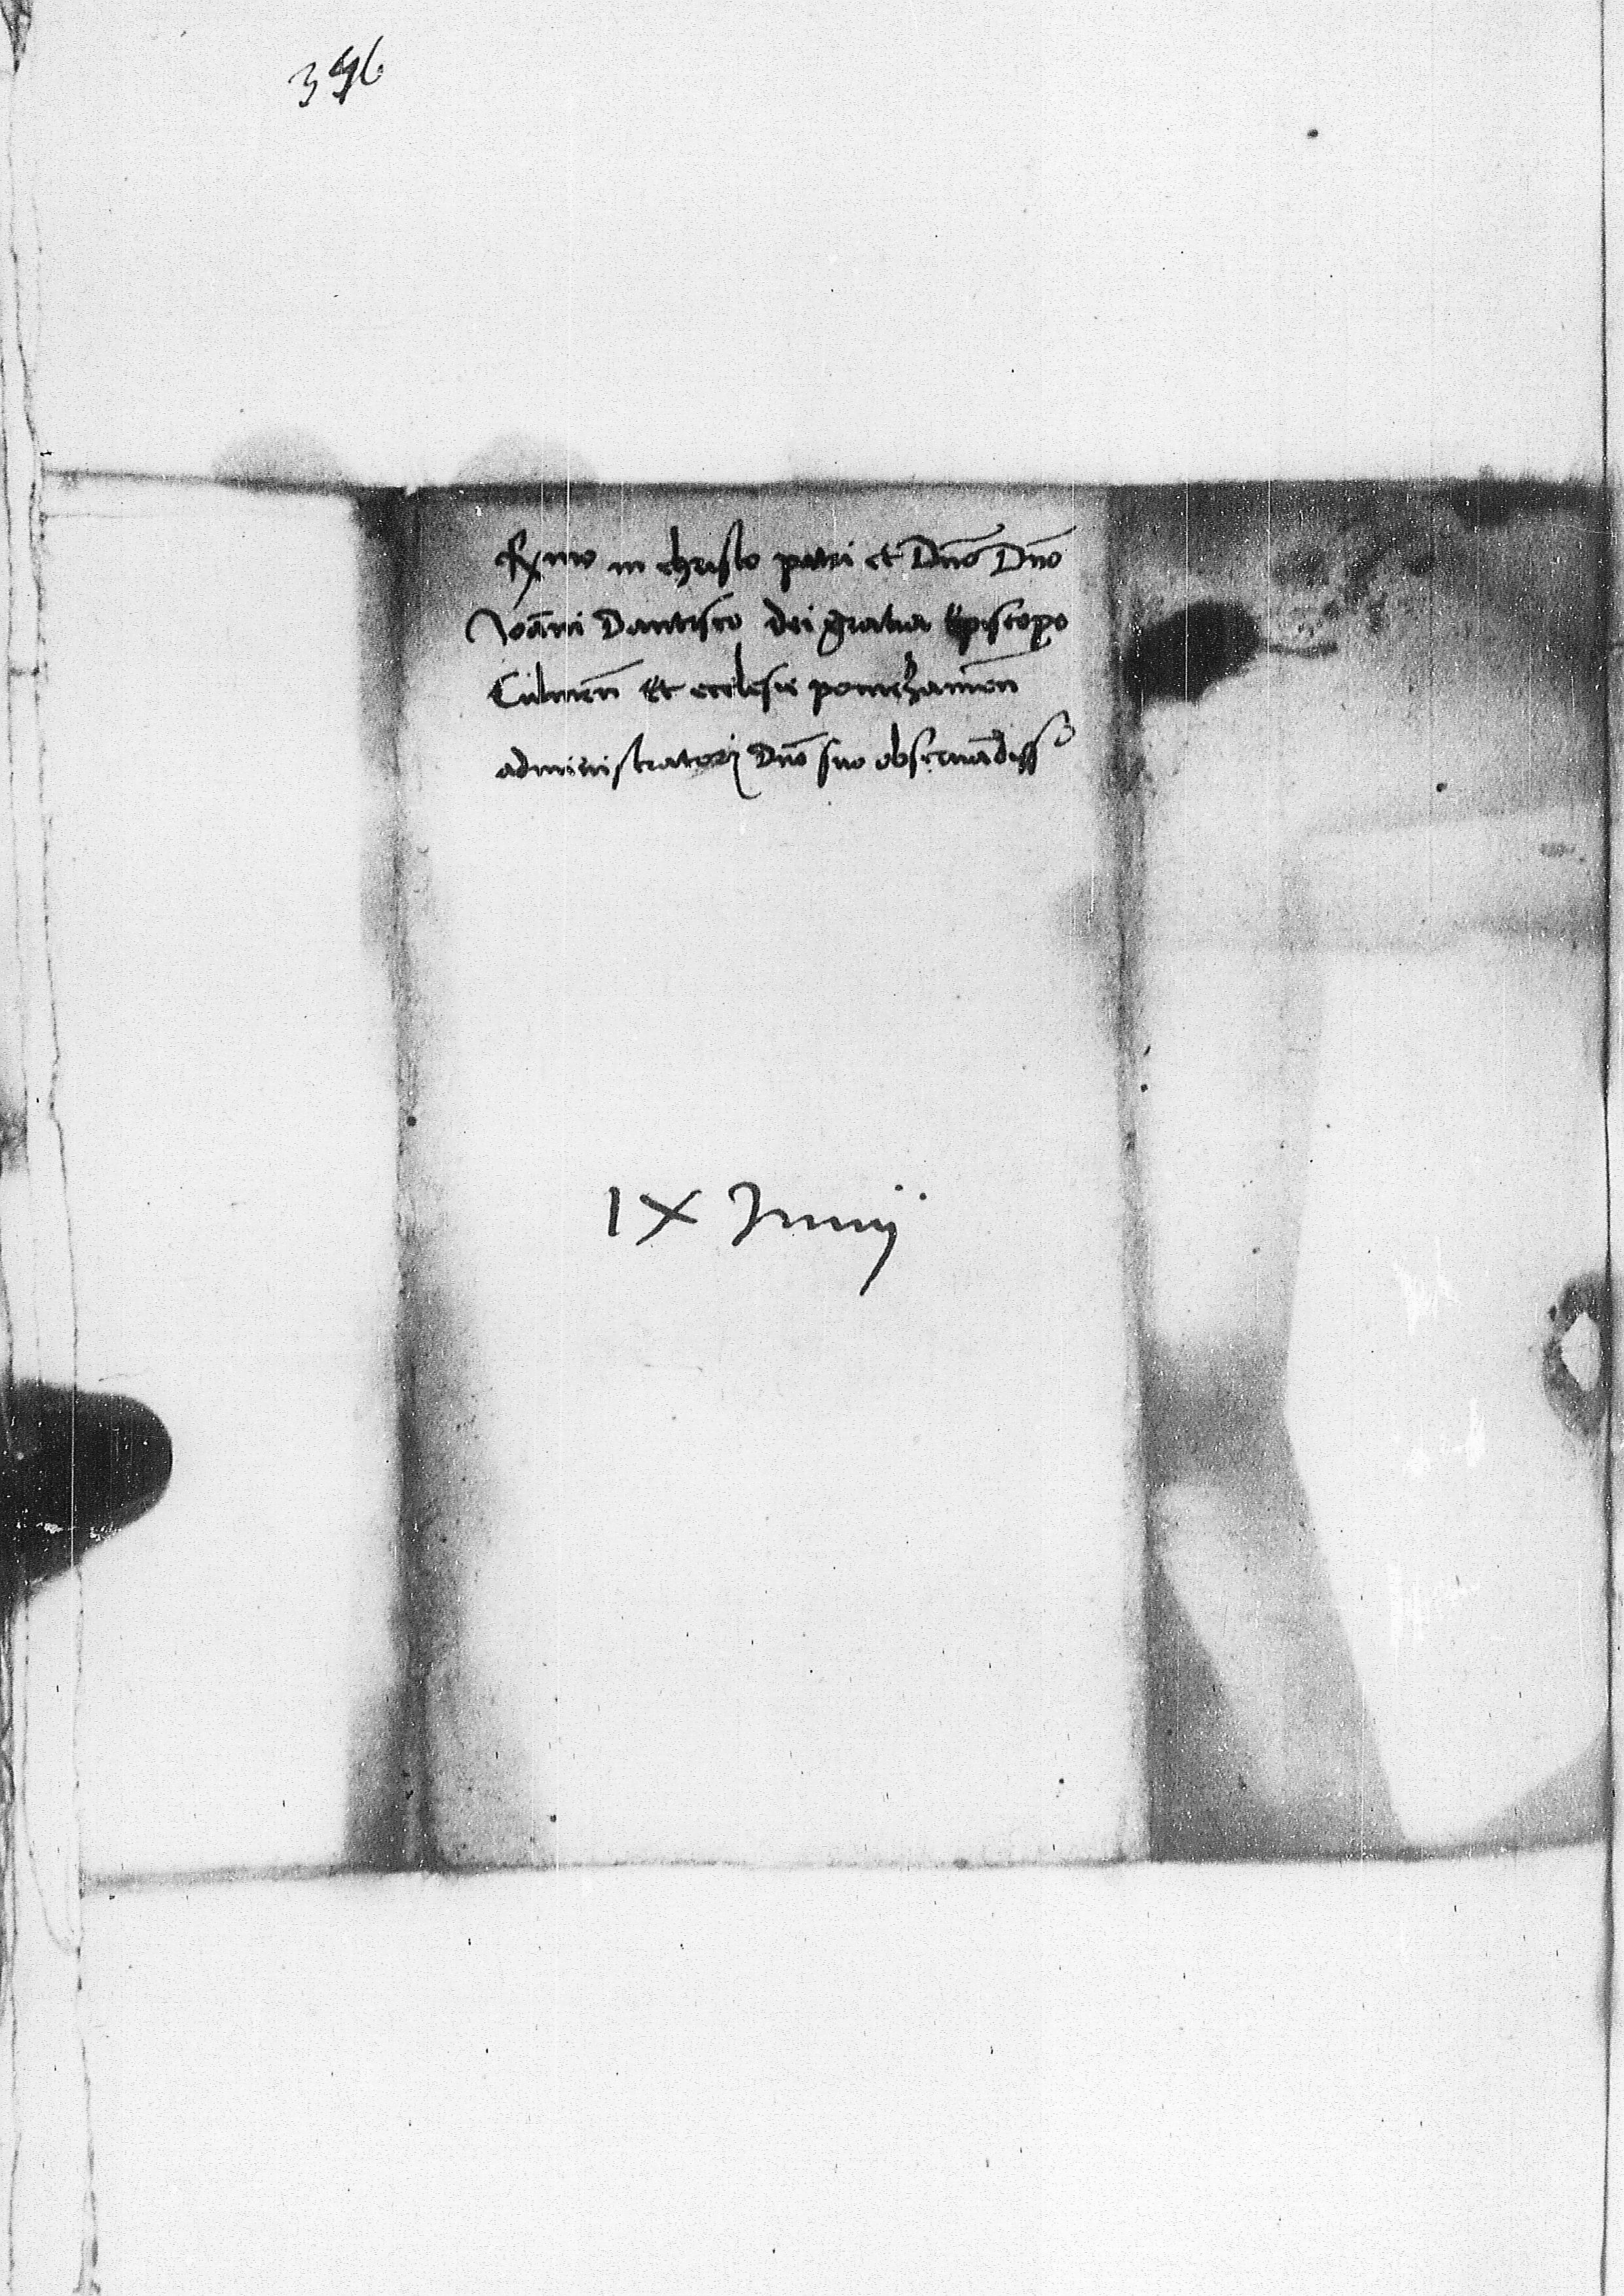 Rxmo in christo patri et Dño Dño
Ioãni Dantisco dei gratia Episcopo
Culmeñ et ecclesie pomezanieñ
administratori Dño suo obseruãdiss°
IX Junij